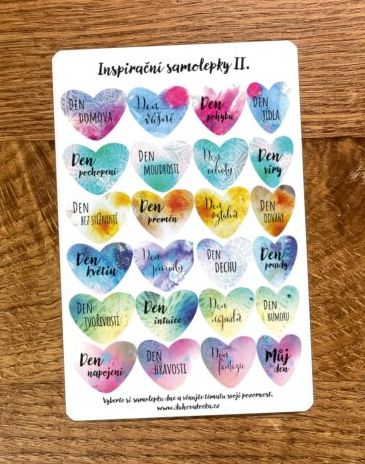 Inspirační samolepky II.
Den
DOMOVA
Den
vášně
Den
pohybu
DEN
JÍDLA
Den
pochopení
DEN
MOUDROSTI
Den
odvahy
Den
víry
DEN
BEZ STÍŽNOSTÍ
Den
proměn
Den
vztahů
DEN
ODVAHY
Den
květin
Den
přírody
DEN
DECHU
Den
pravdy
DEN
TVOŘIVOSTI
Den
intuice
Den
nápadů
DEN
HUMORU
Den
napojení
DEN
HRAVOSTI
Den
fantazie
Můj
den
Vyberte si samolepku dne a věnujte tématu svoji pozornost.